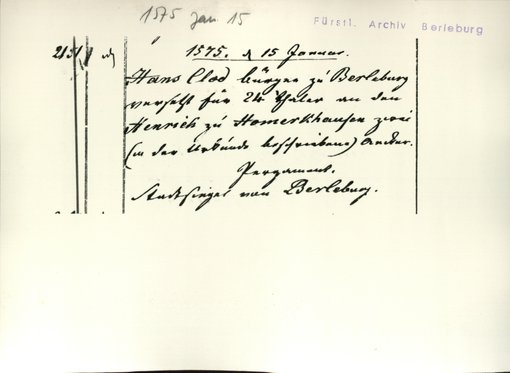 1575 Jan. 15
Fürstl. Archiv Berleburg
1575. d 15 Januar.
Hans Clod bürger zu Berleburg
versetzt für 24 thaler an den
Henrich zu Homerkhausen zwei
(in der Urkunde beschriebene) Aecker.
Pergament.
Stadtsiegel von Berleburg.